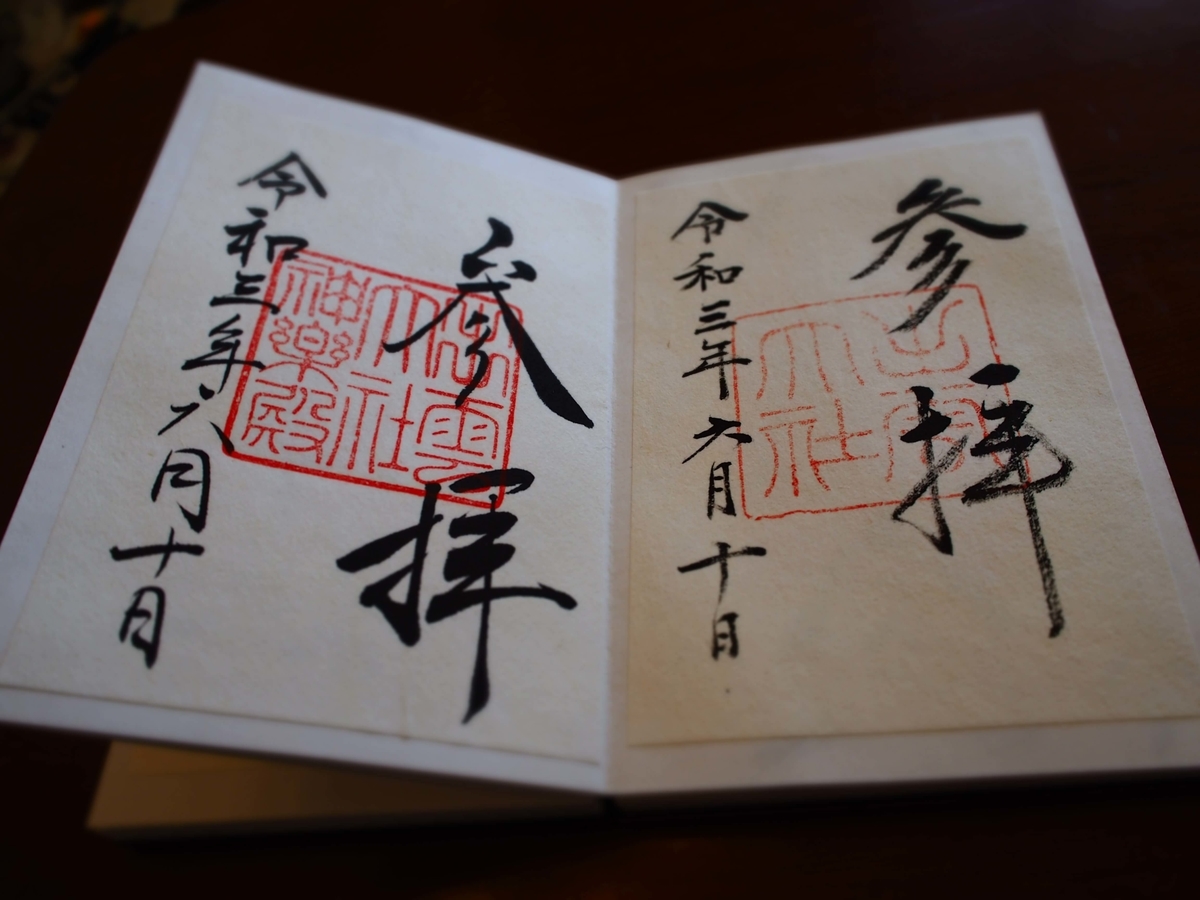 参拝
出雲
大社
令和三年六月十日
参拝
出雲
大社
神楽殿
令和三年六月十日